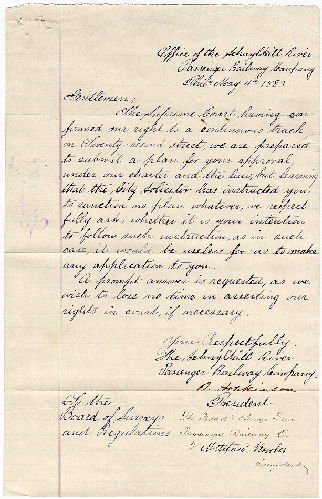 Office of the Schuylkill River
Passenger Railway Company
Phila May 11th 1883
Gentlemen;
The Supreme Court having con
firmed our right to a continuous track
on Twenty-second street, we are prepared
to submit a plan for your approval
under our charter and the law, but learning
that the City Solicitor has instructed you
to sanction no plan whatever, we respect
fully ask, whether it is your intention
to follow such instruction, as in such
case, it would be useless for us to make
any application to you.
A prompt answer is requested, as we
wish to lose no time in asserting our
rights in court, if necessary.
Yours Respectfully.
The Schuylkill River
Passenger Railway Company.
President
To the
Board of Survey
and Regulations
Passenger Railway Co